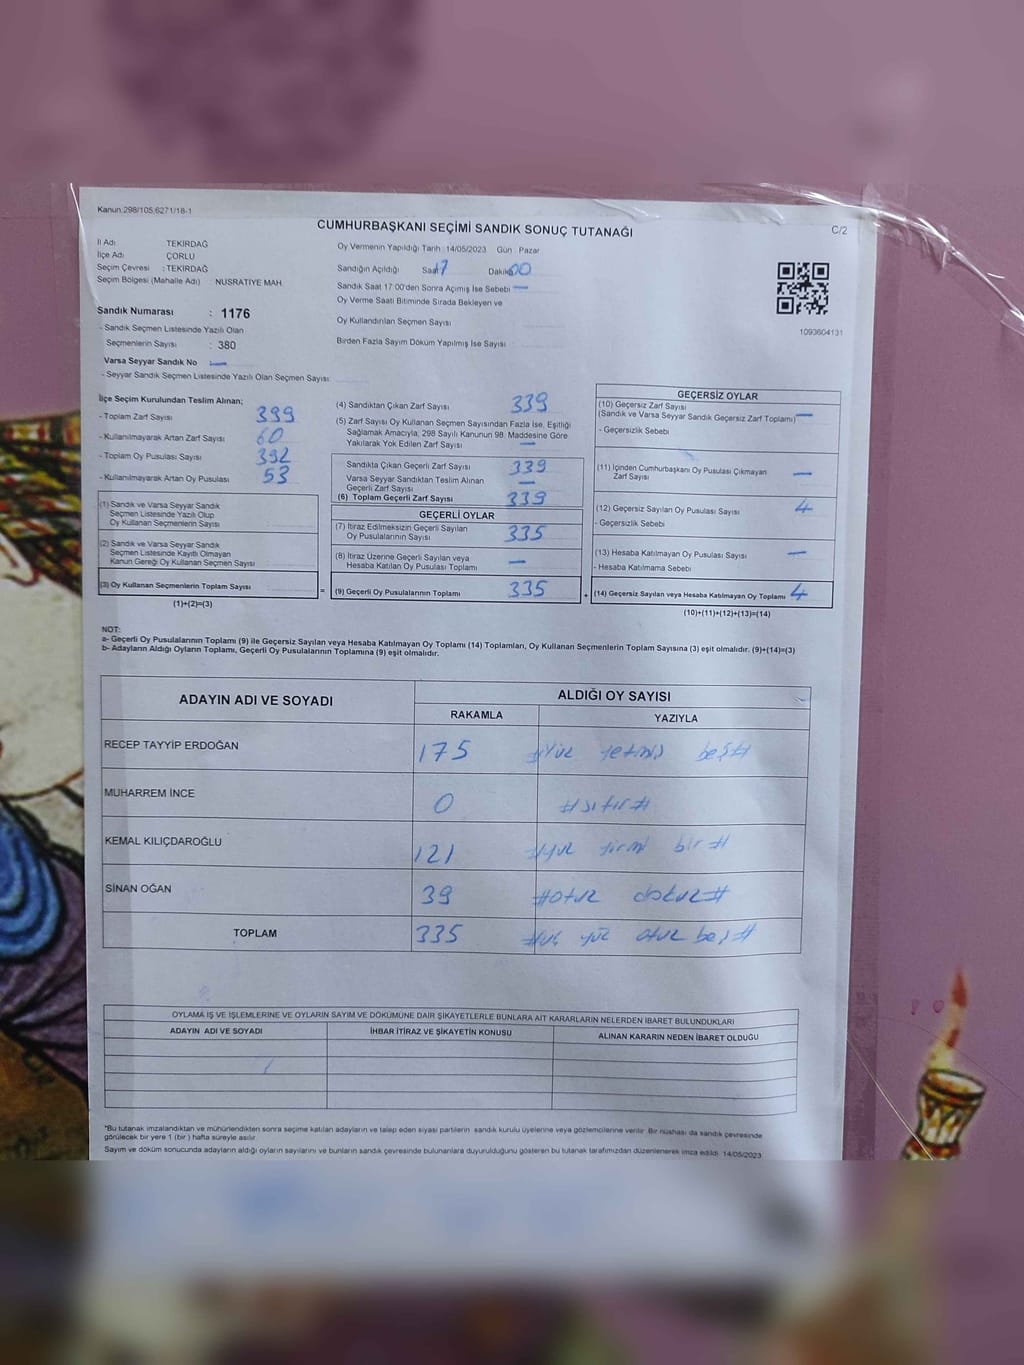 Kanun:298/105,6271/18-1
C/2
CUMHURBAŞKANI SEÇİMİ SANDIK SONUÇ TUTANAĞI
İl Adı TEKİRDAĞ
İlçe Adı ÇORLU
Seçim Çevresi : TEKİRDAĞ
Seçim Bölgesi (Mahalle Adı) NUSRATİYE MAH
Sandık Numarası : 1176
- Sandık Seçmen Listesinde Yazılı Olan
Seçmenlerin Sayısı : 380
Varsa Seyyar Sandık No —
- Seyyar Sandık Seçmen Listesinde Yazılı Olan Seçmen Sayısı:
Oy Vermenin Yapıldığı Tarih: 14/05/2023 Gün : Pazar
Sandığın Açıldığı Saat 17 Dakika 00
Sandık Saat 17:00'den Sonra Açımış İse Sebebi —
Oy Verme Saati Bitiminde Sırada Bekleyen ve
Oy Kullandırılan Seçmen Sayısı
Birden Fazla Sayım Döküm Yapılmış İse Sayısı
1093604131
İlçe Seçim Kurulundan Teslim Alınan;
- Toplam Zarf Sayısı 399
- Kullanılmayarak Artan Zarf Sayısı 60
- Toplam Oy Pusulası Sayısı 392
- Kullanılmayarak Artan Oy Pusulası 53
(1) Sandık ve Varsa Seyyar Sandık
Seçmen Listesinde Yazılı Olup
Oy Kullanan Seçmenlerin Sayısı
(2) Sandık ve Varsa Seyyar Sandık
Seçmen Listesinde Kayıtlı Olmayan
Kanun Gereği Oy Kullanan Seçmen Sayısı
(3) Oy Kullanan Seçmenlerin Toplam Sayısı =
(1)+(2)=(3)
(4) Sandıktan Çıkan Zarf Sayısı 339
(5) Zarf Sayısı Oy Kullanan Seçmen Sayısından Fazla İse, Eşitliği
Sağlamak Amacıyla, 298 Sayılı Kanunun 98. Maddesine Göre
Yakılarak Yok Edilen Zarf Sayısı —
Sandıkta Çıkan Geçerli Zarf Sayısı 339
Varsa Seyyar Sandıktan Teslim Alınan
Geçerli Zarf Sayısı —
(6) Toplam Geçerli Zarf Sayısı 339
GEÇERLİ OYLAR
(7) İtiraz Edilmeksizin Geçerli Sayılan
Oy Pusulalarının Sayısı 335
(8) İtiraz Üzerine Geçerli Sayılan veya
Hesaba Katılan Oy Pusulası Toplamı —
(9) Geçerli Oy Pusulalarının Toplamı 335 +
GEÇERSİZ OYLAR
(10) Geçersiz Zarf Sayısı
(Sandık ve Varsa Seyyar Sandık Geçersiz Zarf Toplamı) —
- Geçersizlik Sebebi
(11) İçinden Cumhurbaşkanı Oy Pusulası Çıkmayan
Zarf Sayısı —
(12) Geçersiz Sayılan Oy Pusulası Sayısı 4
- Geçersizlik Sebebi
(13) Hesaba Katılmayan Oy Pusulası Sayısı —
- Hesaba Katılmama Sebebi
(14) Geçersiz Sayılan veya Hesaba Katılmayan Oy Toplamı 4
(10)+(11)+(12)+(13)=(14)
NOT:
a- Geçerli Oy Pusulalarının Toplamı (9) ile Geçersiz Sayılan veya Hesaba Katılmayan Oy Toplamı (14) Toplamları, Oy Kullanan Seçmenlerin Toplam Sayısına (3) eşit olmalıdır. (9)+(14)=(3)
b- Adayların Aldığı Oyların Toplamı, Geçerli Oy Pusulalarının Toplamına (9) eşit olmalıdır.
ADAYIN ADI VE SOYADI ALDIĞI OY SAYISI
RAKAMLA YAZIYLA
RECEP TAYYİP ERDOĞAN 175 #Yüz yetmiş beş#
MUHARREM İNCE 0 #sıfır#
KEMAL KILIÇDAROĞLU 121 #yüz yirmi bir#
SİNAN OĞAN 39 #otuz dokuz#
TOPLAM 335 #üç yüz otuz beş#
OYLAMA İŞ VE İŞLEMLERİNE VE OYLARIN SAYIM VE DÖKÜMÜNE DAİR ŞİKAYETLERLE BUNLARA AİT KARARLARIN NELERDEN İBARET BULUNDUKLARI
ADAYIN ADI VE SOYADI İHBAR İTİRAZ VE ŞİKAYETİN KONUSU ALINAN KARARIN NEDEN İBARET OLDUĞU
*Bu tutanak imzalandıktan ve mühürlendikten sonra seçime katılan adayların ve talep eden siyasi partilerin sandık kurulu üyelerine veya gözlemcilerine verilir. Bir nüshası da sandık çevresinde
görülecek bir yere 1 (bir ) hafta süreyle asılır.
Sayım ve döküm sonucunda adayların aldığı oyların sayılarını ve bunların sandık çevresinde bulunanlara duyurulduğunu gösteren bu tutanak tarafımızdan düzenlenerek imza edildi. 14/05/2023